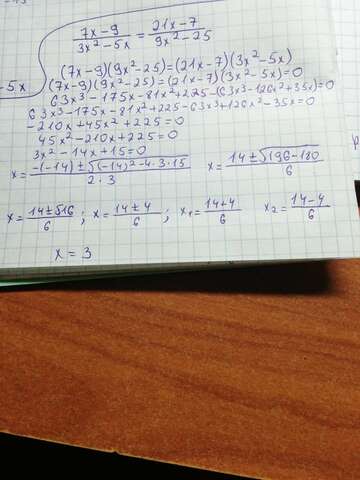 -43
7x-9/3x²-5x = 21x-7/9x²-25
(7x-9)(9x²-25)=(21x-7)(3x²-5x)
-5x
(7x-9)(9x²-25)=(21x-7)(3x²-5x)=0
63x³-175x-81x²+225-(63x³-126x²+35x)=0
63x³-175x-81x²+225-63x³+126x²-35x=0
-210x+45x²+225=0
45x²-210x+225=0
3x²-14x+15=0
x=-(-14)±√(-14)²-4·3·15/2·3 x=14±√196-180/6
x=14±√16/6; x=14±4/6; x₁=14+4/6 x₂=14-4/6
x=3